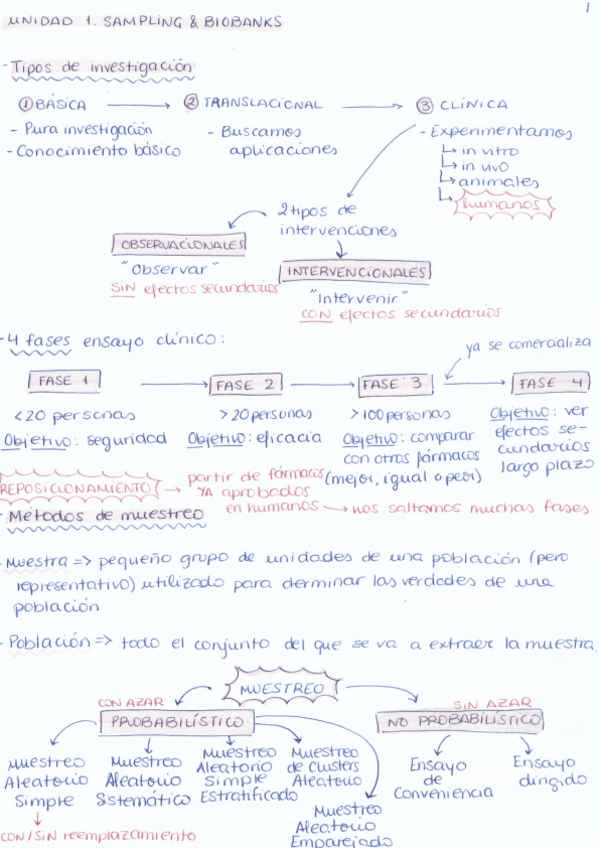 1
UNIDAD 1. SAMPLING & BIOBANKS
- Tipos de investigación
① BÁSICA → ② TRANSLACIONAL → ③ CLÍNICA
- Pura investigación
- Conocimiento básico
- Buscamos
aplicaciones
- Experimentamos
↳ in vitro
↳ in vivo
↳ animales
↳ humanos
2 tipos de
intervenciones
OBSERVACIONALES
"Observar"
SIN efectos secundarios
INTERVENCIONALES
"Intervenir"
CON efectos secundarios
- 4 fases ensayo clínico:
ya se comercializa
FASE 1 → FASE 2 → FASE 3 → FASE 4
< 20 personas
Objetivo: seguridad
> 20 personas
Objetivo: eficacia
> 100 personas
Objetivo: comparar
con otros fármacos
(mejor, igual o peor)
Objetivo: ver
efectos se-
cundarios
largo plazo
REPOSICIONAMIENTO → partir de fármacos
YA aprobados
en humanos → nos saltamos muchas fases
- Métodos de muestreo
- Muestra => pequeño grupo de unidades de una población (pero
representativo) utilizado para derminar las verdades de una
población
- Población => todo el conjunto del que se va a extraer la muestra.
MUESTREO
CON AZAR
PROBABILÍSTICO
SIN AZAR
NO PROBABILÍSTICO
Muestreo
Aleatorio
Simple
CON/SIN reemplazamiento
Muestreo
Aleatorio
Sistemático
Muestreo
Aleatorio
Simple
Estratificado
Muestreo
de clusters
Aleatorio
Muestreo
Aleatorio
Emparejado
Ensayo
de
Conveniencia
Ensayo
dirigido